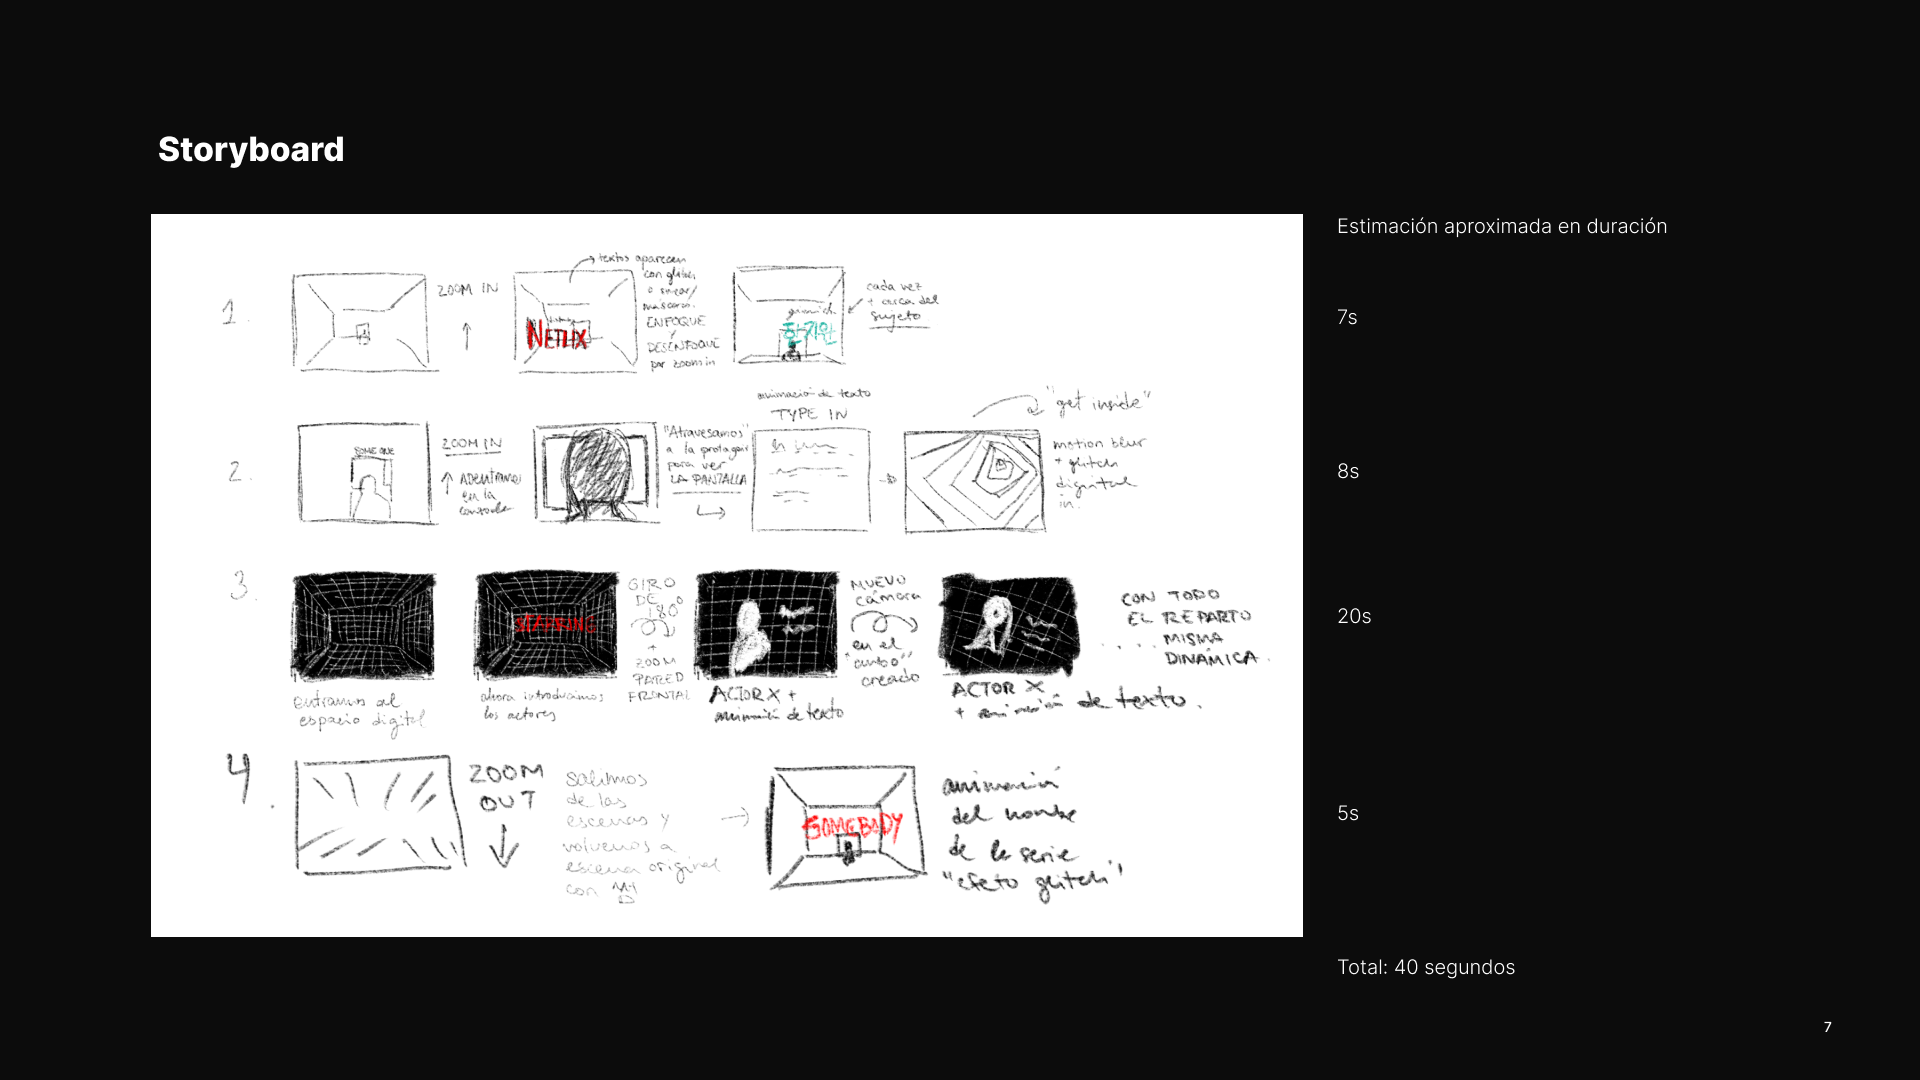 Storyboard
Estimación aproximada en duración
1.
ZOOM IN
NETFLIX
textos aparecen
con glitch
o smear/
máscaras.
ENFOQUE
Y
DESENFOQUE
por zoom in
한기완
cada vez
+ cerca del
sujeto
7s
2.
SOME ONE
ZOOM IN
Adentramos
en la
"Atravesamos"
a la protagon
para ver
LA PANTALLA
animación de texto
TYPE IN
"get inside"
motion blur
+ glitch
digital
in.
8s
3.
entramos al
espacio digital
STARRING
ahora introducimos
los actores
GIRO
DE
180º
+
ZOOM
PARED
FRONTAL
ACTOR X +
animación de texto
MUEVO
cámara
en el
"cubo"
creado
ACTOR X
+ animación de texto.
CON TODO
EL REPARTO
.... MISMA
DINÁMICA.
20s
4.
ZOOM
OUT
Salimos
de las
escenas y
volvemos a
escena original
con
SOMEBODY
animación
del nombre
de la serie
"efeto glitch"
5s
Total: 40 segundos
7